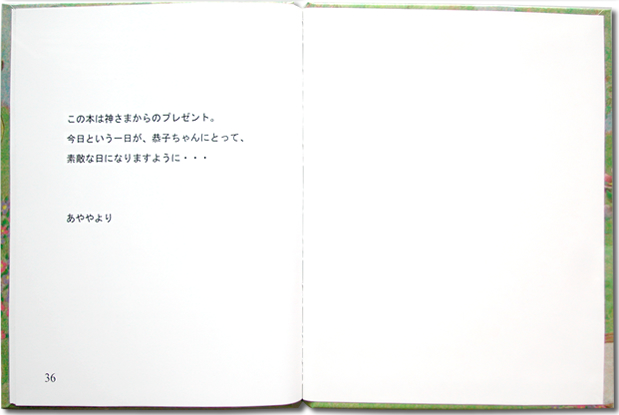 この本は神さまからのプレゼント。
今日という一日が、恭子ちゃんにとって、
素敵な日になりますように・・・
あややより
36